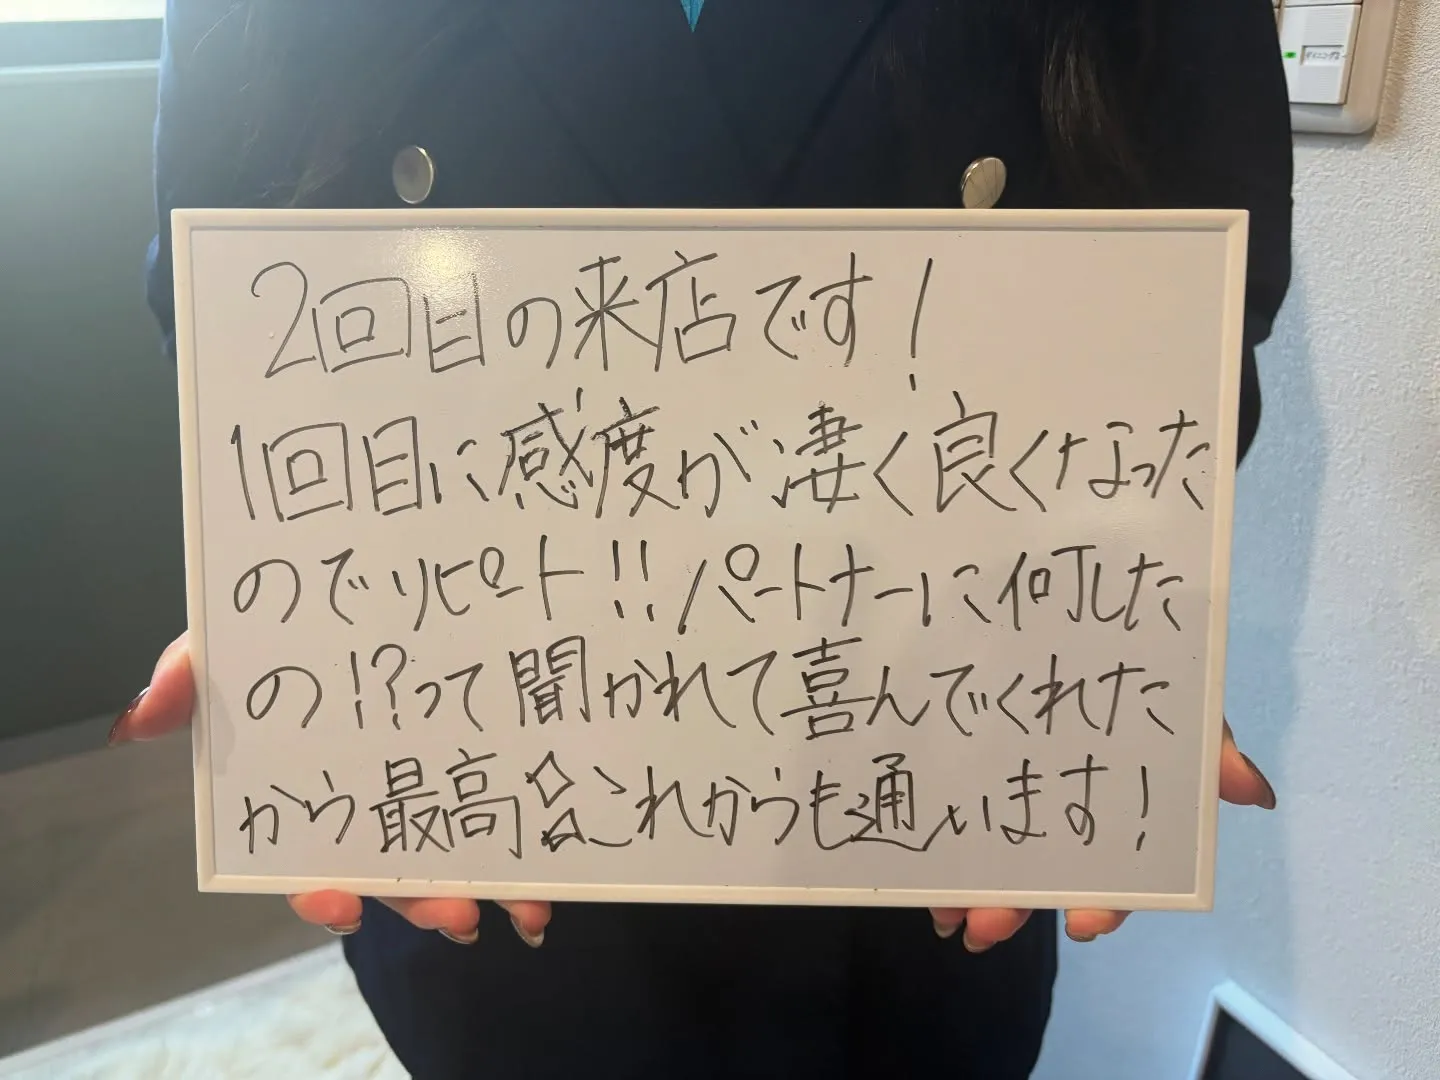 2回目の来店です!
1回目に感度が凄く良くなった
のでリピート!!パートナーに何した
の!?って聞かれて喜んでくれた
から最高これからも通います!